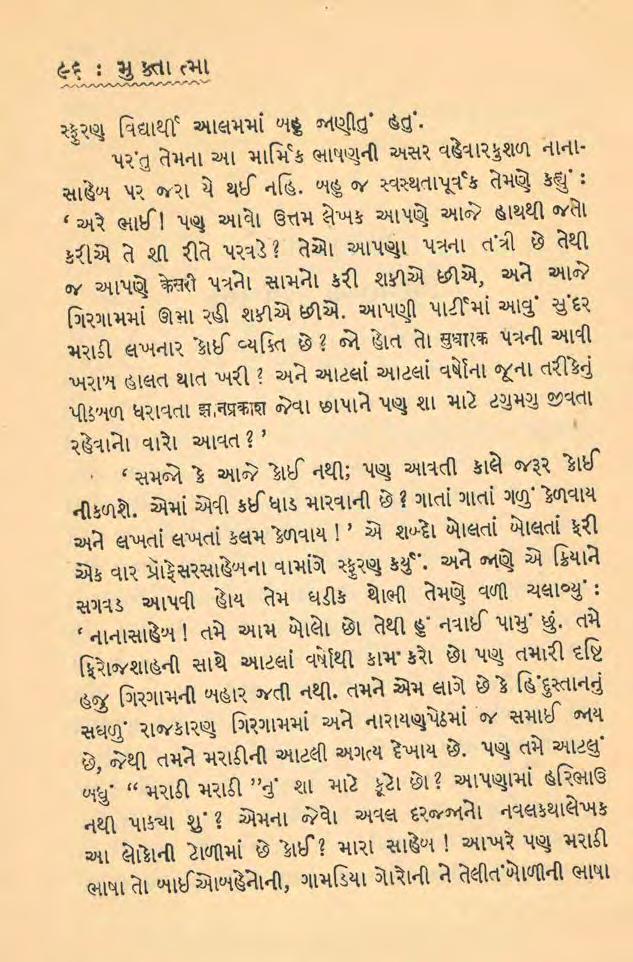 ૯૬ : મુ ક્તા ત્મા
સ્ફુરણ વિદ્યાર્થી આલમમાં બહુ જાણીતું હતું.
પરંતુ તેમના આ માર્મિક ભાષણની અસર વહેવારકુશળ નાના-
સાહેબ પર જરા યે થઈ નહિ. બહુ જ સ્વસ્થતાપૂર્વક તેમણે કહ્યું :
‘ અરે ભાઈ! પણ આવો ઉત્તમ લેખક આપણે આજે હાથથી જતો
કરીએ તે શી રીતે પરવડે? તેઓ આપણા પત્રના તંત્રી છે તેથી
જ આપણે केसरी પત્રનો સામનો કરી શકીએ છીએ, અને આજે
ગિરગામમાં ઊભા રહી શકીએ છીએ. આપણી પાર્ટીમાં આવું સુંદર
મરાઠી લખનાર કોઈ વ્યક્તિ છે? જો હોત તો सुधारक પત્રની આવી
ખરાબ હાલત થાત ખરી? અને આટલાં આટલાં વર્ષોના જૂના તરીકેનું
પીઠબળ ધરાવતા ज्ञानप्रकाश જેવા છાપાને પણ શા માટે ટગુમગુ જીવતા
રહેવાનો વારો આવત?’
‘ સમજો કે આજે કોઈ નથી; પણ આવતી કાલે જરૂર કોઈ
નીકળશે. એમાં એવી કઈ ધાડ મારવાની છે? ગાતાં ગાતાં ગળું કેળવાય
અને લખતાં લખતાં કલમ કેળવાય!’ એ શબ્દો બોલતાં બોલતાં ફરી
એક વાર પ્રોફેસરસાહેબના વામાંગે સ્ફુરણ કર્યું. અને જાણે એ ક્રિયાને
સગવડ આપવી હોય તેમ ઘડીક થોભી તેમણે વળી ચલાવ્યું :
‘ નાનાસાહેબ! તમે આમ બોલો છો તેથી હું નવાઈ પામું છું. તમે
ફિરોજશાહની સાથે આટલાં વર્ષોથી કામ કરો છો પણ તમારી દૃષ્ટિ
હજુ ગિરગામની બહાર જતી નથી. તમને એમ લાગે છે કે હિંદુસ્તાનનું
સઘળું રાજકારણ ગિરગામમાં અને નારાયણપેઠમાં જ સમાઈ જાય
છે, જેથી તમને મરાઠીની આટલી અગત્ય દેખાય છે. પણ તમે આટલું
બધું “ મરાઠી મરાઠી ”નું શા માટે કૂટો છો? આપણામાં હરિભાઉ
નથી પાક્યા શું? એમના જેવો અવલ દરજ્જાનો નવલકથાલેખક
આ લોકોની ટોળીમાં છે કોઈ? મારા સાહેબ! આખરે પણ મરાઠી
ભાષા તો બાઈઓબહેનોની, ગામડિયા ગોરોની ને તેલીતંબોળીની ભાષા